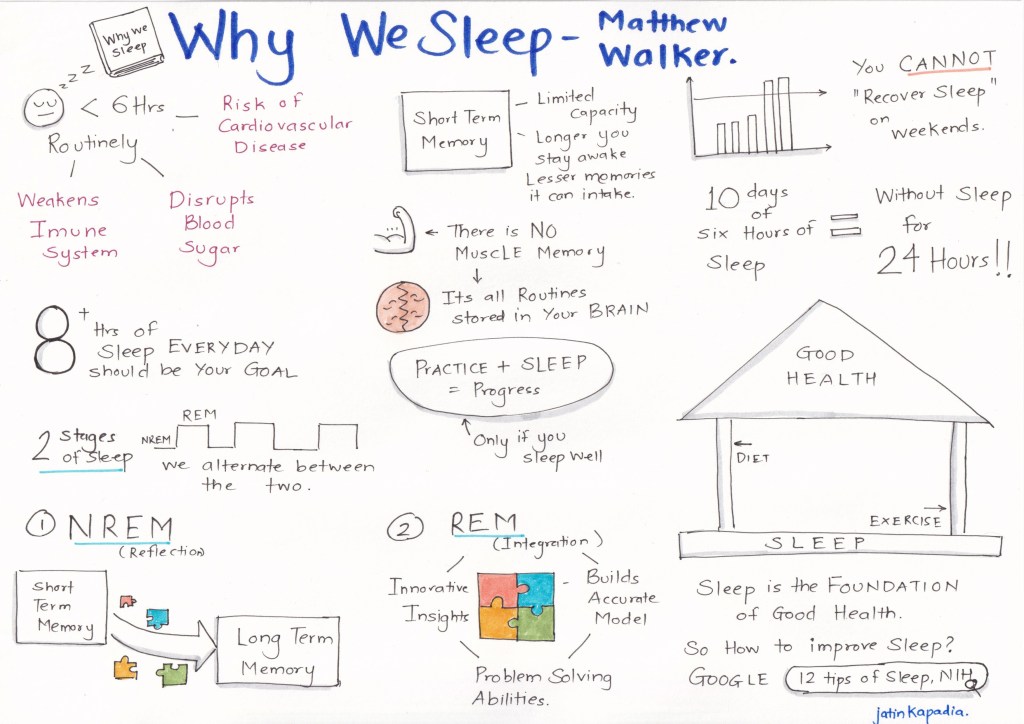 Why We Sleep
Why We Sleep - Matthew Walker.
zzz
< 6 Hrs
Routinely
Risk of
Cardiovascular
Disease
Weakens
Imune
System
Disrupts
Blood
Sugar
8+
Hrs of
Sleep EVERYDAY
should be Your GOAL
2 Stages
of Sleep
REM
NREM
we alternate between
the two.
1 NREM
(Reflection)
Short
Term
Memory
Long Term
Memory
Short Term
Memory
Limited
Capacity
Longer you
stay awake
Lesser memories
it can intake.
There is NO
MuscLE Memory
Its all Routines
stored in Your BRAIN
PRACTICE + SLEEP
= Progress
Only if you
sleep well
2 REM
(Integration)
Innovative
Insights
Builds
Accurate
Model
Problem Solving
Abilities.
You CANNOT
"Recover Sleep"
on
weekends.
10 days
of
six Hours of
Sleep
=
Without Sleep
for
24 Hours!!
GOOD
HEALTH
DIET
EXERCISE
SLEEP
Sleep is the FOUNDATION
of Good Health.
So How to improve Sleep?
GOOGLE 12 tips of Sleep, NIH
jatin Kapadia.